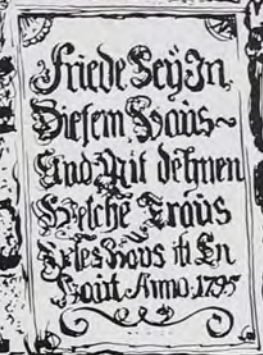 Friede Seÿ In
Diesem Haus~
Und Mit dehnen
Welche Traus
Haus En
baut Anno 1795